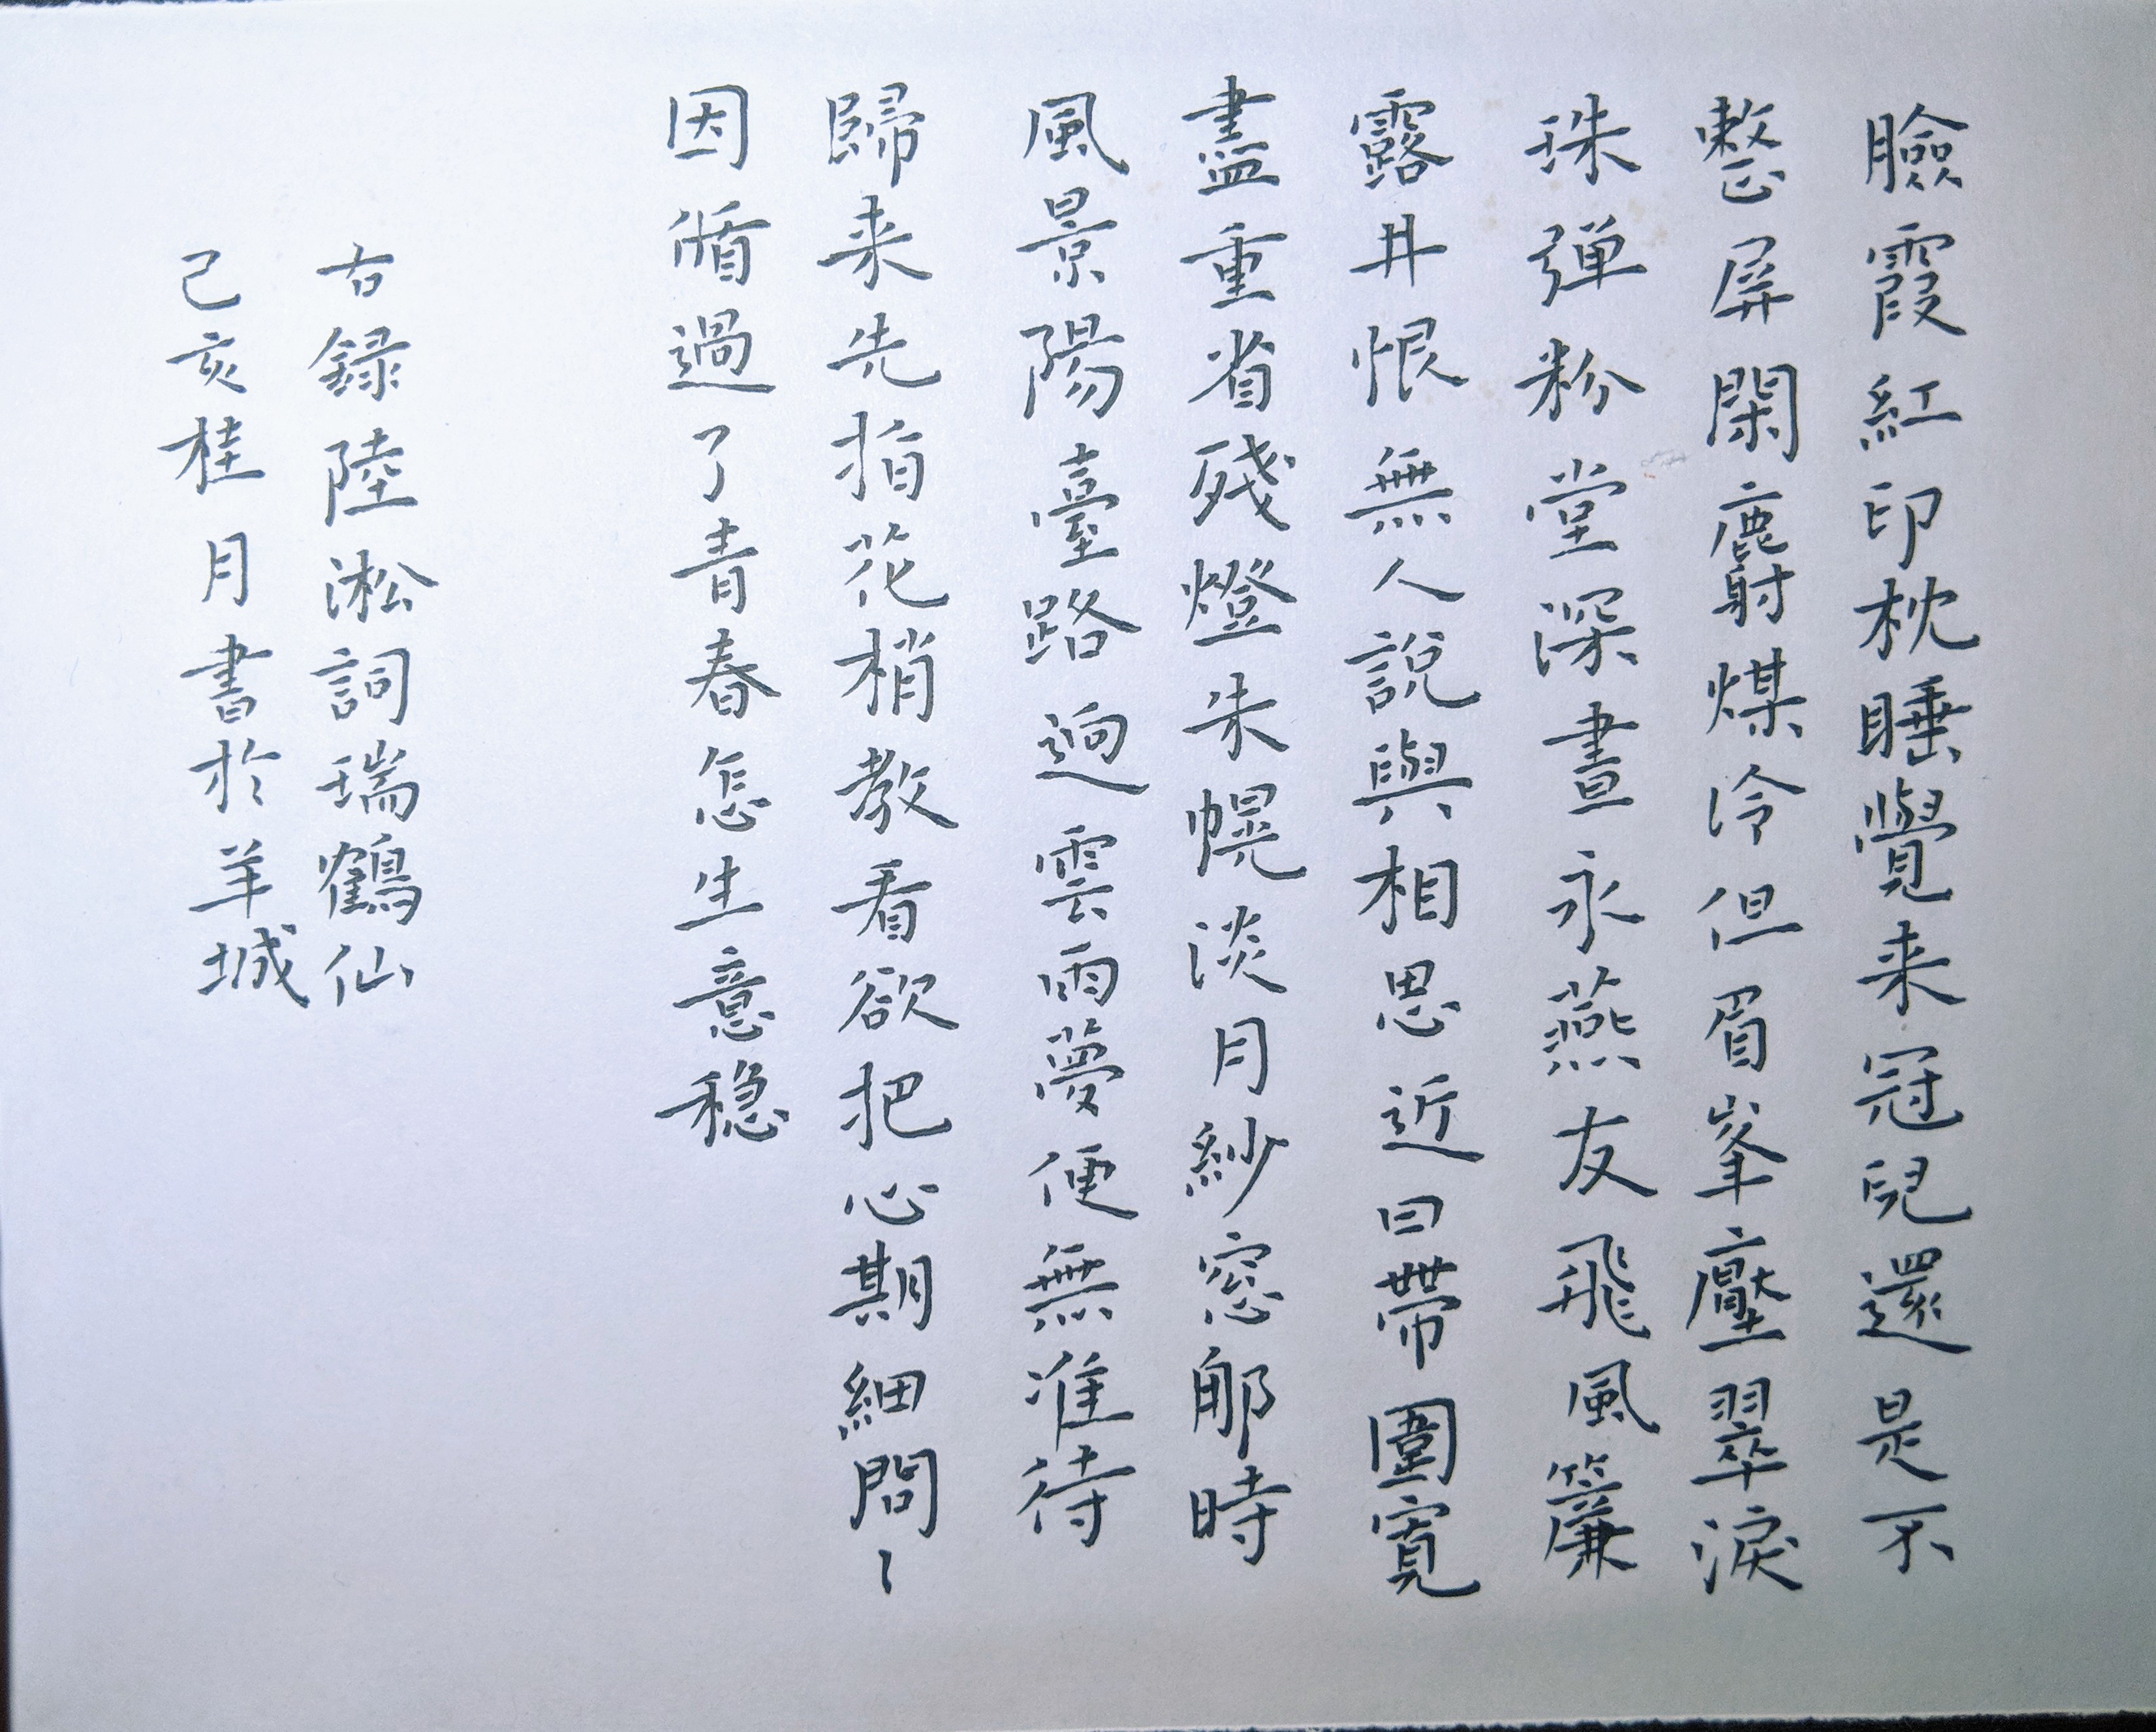 臉霞紅印枕睡覺来冠兒還是不
整屏閑麝煤冷但眉峯壓翠淚
珠彈粉堂深晝永燕友飛風簾
露井恨無人說與相思近日帶圍寬
盡重省殘燈朱幌淡月紗窓那時
風景陽臺路迥雲雨夢便無准待
歸来先指花梢教看欲把心期細問〻
因循過了青春怎生意穩
右録陸淞詞瑞鶴仙
己亥桂月書於羊城